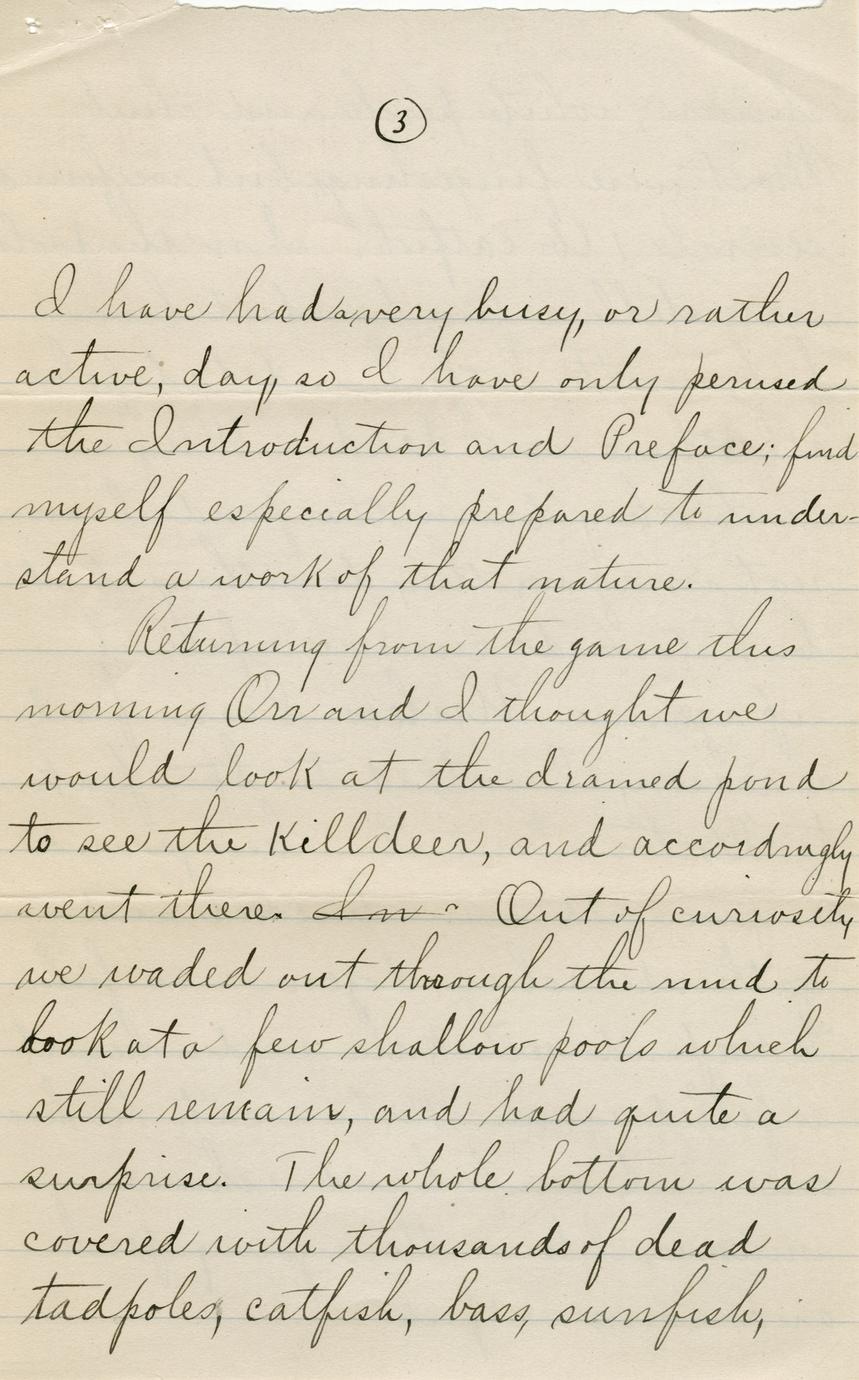 3
I have had a very busy, or rather
active, day, so I have only perused
the Introduction and Preface; find
myself especially prepared to under-
stand a work of that nature.
Returning from the game this
morning Orr and I thought we
would look at the drained pond
to see the Killdeer, and accordingly
went there. In Out of curiosity
we waded out through the mud to
look at a few shallow pools which
still remain, and had quite a
surprise. The whole bottom was
covered with thousands of dead
tadpoles, catfish, bass, sunfish,